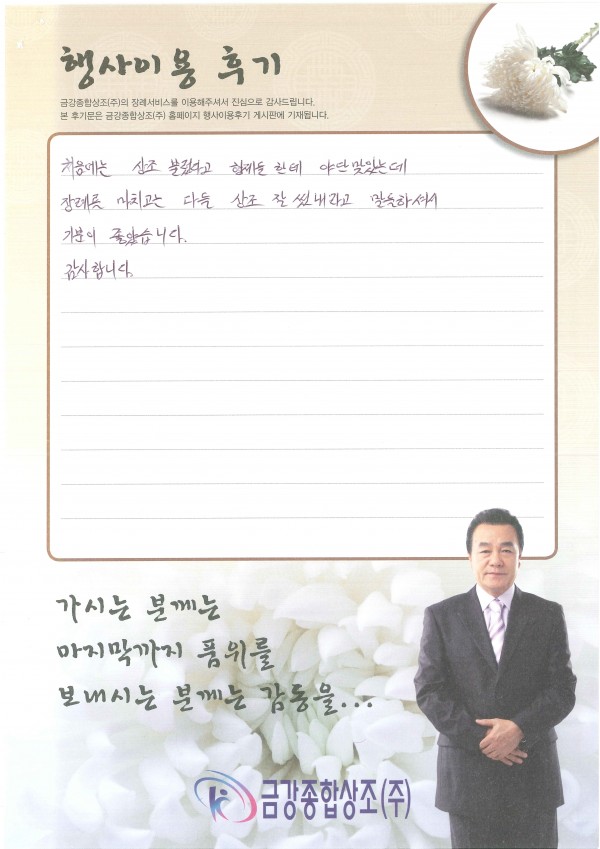 행사이용 후기
금강종합상조(주)의 장례서비스를 이용해주셔서 진심으로 감사드립니다.
본 후기문은 금강종합상조(주) 홈페이지 행사이용후기 게시판에 기재됩니다.
처음에는 상조 불렀다고 형제들 한테 야단맞았는데
장례를 마치고는 다들 상조 잘 썼내라고 말씀하셔서
기분이 좋았습니다.
감사합니다.
가시는 분께는
마지막까지 품위를
보내시는 분께는 감동을...
금강종합상조(주)